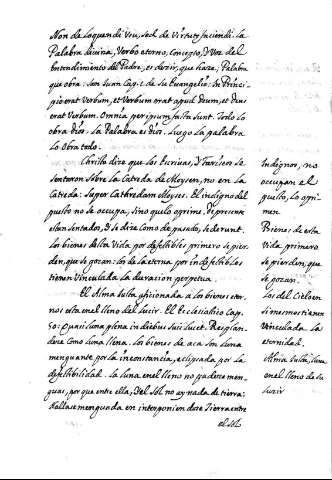 Non de loquendi Usu, sed de Virtute faciendi. La
Palabra divina, Verbo eterno, Concepto, y Voz del
Entendimiento del Padre, es dezir, que haze; Palabra
que obra. San Juan Cap. 1 de su Evangelio: In Princi-
pio erat Verbum, et Verbum erat apud Deum, et Deus
erat Verbum. Omnia per ipsum facta sunt. Todo lo
obra Dios. La Palabra es Dios. Luego la palabra
lo obra todo.
Christo dize que los Escrivas, y Fariseos se
sentaron sobre la Catreda de Moysen, no en la
Catreda: Super Cathredam Moyses. El indigno del
puesto no se ocupa, sino que lo oprime, de presente
estan sentados, y se dize como de pasado, sederunt.
los bienes desta Vida por defectibles primero se pier-
den, que se gozan: los de la eterna por indefectibles
tienen Vinculada la duracion perpetua.
El Alma Justa aficionada a los bienes eter-
nos esta en el lleno del lucir. El Ecclesiastico Cap.
50: Quasi luna plena in diebus suis lucet. Resplan-
dece como luna llena. Los bienes de aca son luna
menguante por la inconstancia, eclipsada por la
defectibilidad. La luna en el lleno no padece men-
guas, porque entre ella, y el Sol no ay nada de tierra:
hallase menguada en interponiendose Tierra entre
el Sol
Indignos, no
ocupan el
puesto, lo opri-
men
Bienes de esta
Vida primero
se pierden, que
se gozan.
Los del Cielo en
si mesmos tienen
Vinculada la
eternidad.
Alma Justa, luna
en el lleno de su
luzir